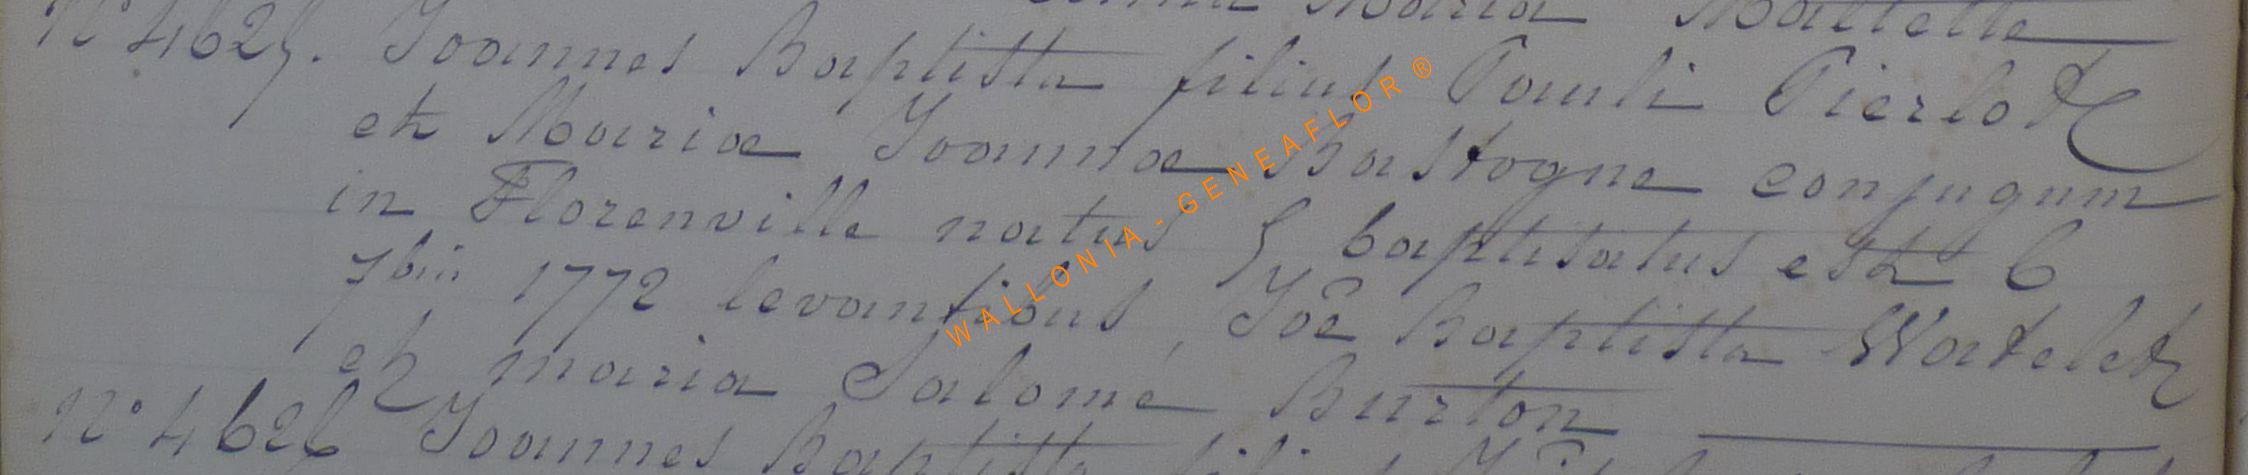 Maria Mallette
N° 4625. Joannes Baptista filius Pauli Pierlot
et Mariæ Joannæ Bastogne conjugum
in Florenville natus 5 baptisatus est 6
7bris 1772 levantibus, Joê Baptista Watelet
et maria Salomé Burton
N° 4626 Joannes Baptista
WALLONIA - GENEAFLOR ®